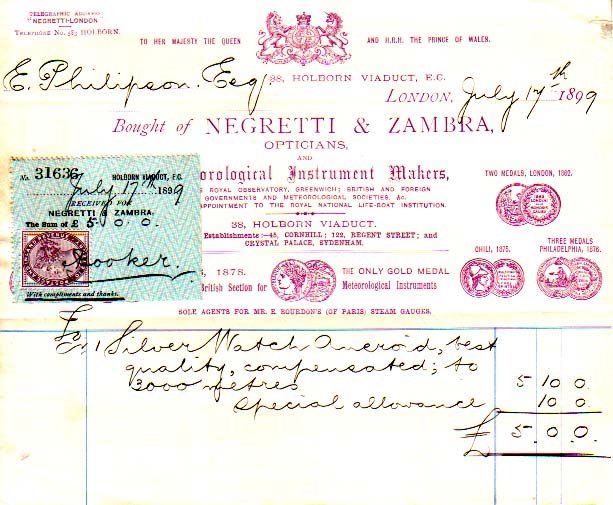 TELEGRAPHIC ADDRESS
"NEGRETTI-LONDON
TELEPHONE No. 583 HOLBORN.
TO HER MAJESTY THE QUEEN AND H.R.H. THE PRINCE OF WALES.
E. Philipson. Esq.
38, HOLBORN VIADUCT, E.C.
LONDON, July 17th 1899
Bought of NEGRETTI & ZAMBRA,
OPTICIANS,
AND
orological Instrument Makers,
ROYAL OBSERVATORY, GREENWICH; BRITISH AND FOREIGN
GOVERNMENTS AND METEOROLOGICAL SOCIETIES, &c.
APPOINTMENT TO THE ROYAL NATIONAL LIFE-BOAT INSTITUTION.
38, HOLBORN VIADUCT.
Establishments:—45, CORNHILL; 122, REGENT STREET; and
CRYSTAL PALACE, SYDENHAM.
TWO MEDALS, LONDON, 1862.
CHILI, 1875.
THREE MEDALS
PHILADELPHIA, 1876.
No. 31636
HOLBORN VIADUCT, E.C.
July 17th 1899
RECEIVED FOR
NEGRETTI & ZAMBRA.
The Sum of £ 5. 0. 0.
Booker.
With compliments and thanks.
, 1878.
British Section for
THE ONLY GOLD MEDAL
Meteorological Instruments
SOLE AGENTS FOR MR. E. BOURDON'S (OF PARIS) STEAM GAUGES.
1 Silver Watch Aneroid, best
quality, compensated; to
3000 metres 5 10 0.
Special allowance 10 0.
£ 5. 0. 0.